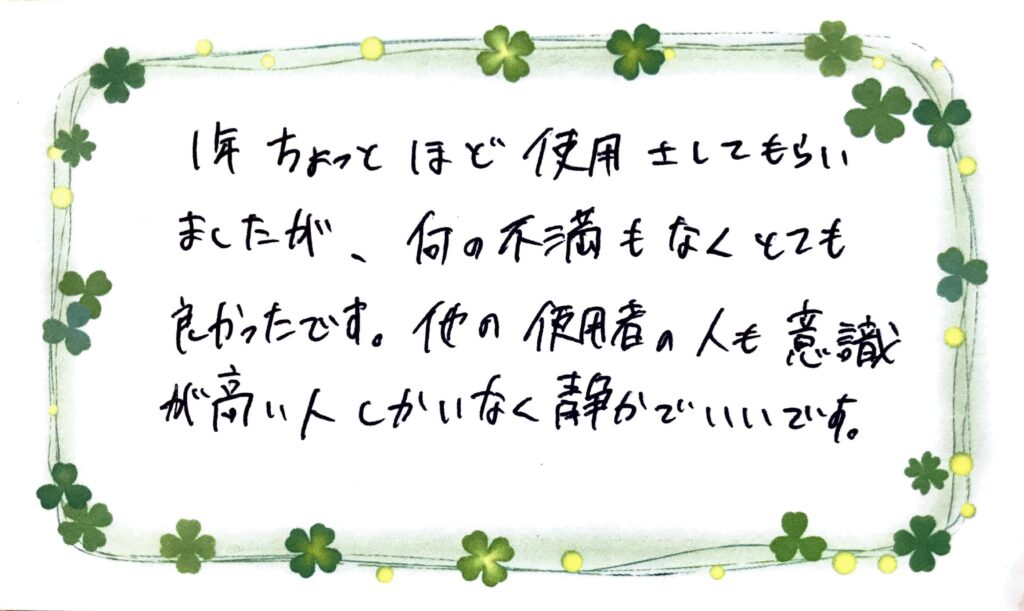 1年ちょっとほど使用さしてもらい
ましたが、何の不満もなくとても
良かったです。他の使用者の人も意識
が高い人しかいなく静かでいいです。